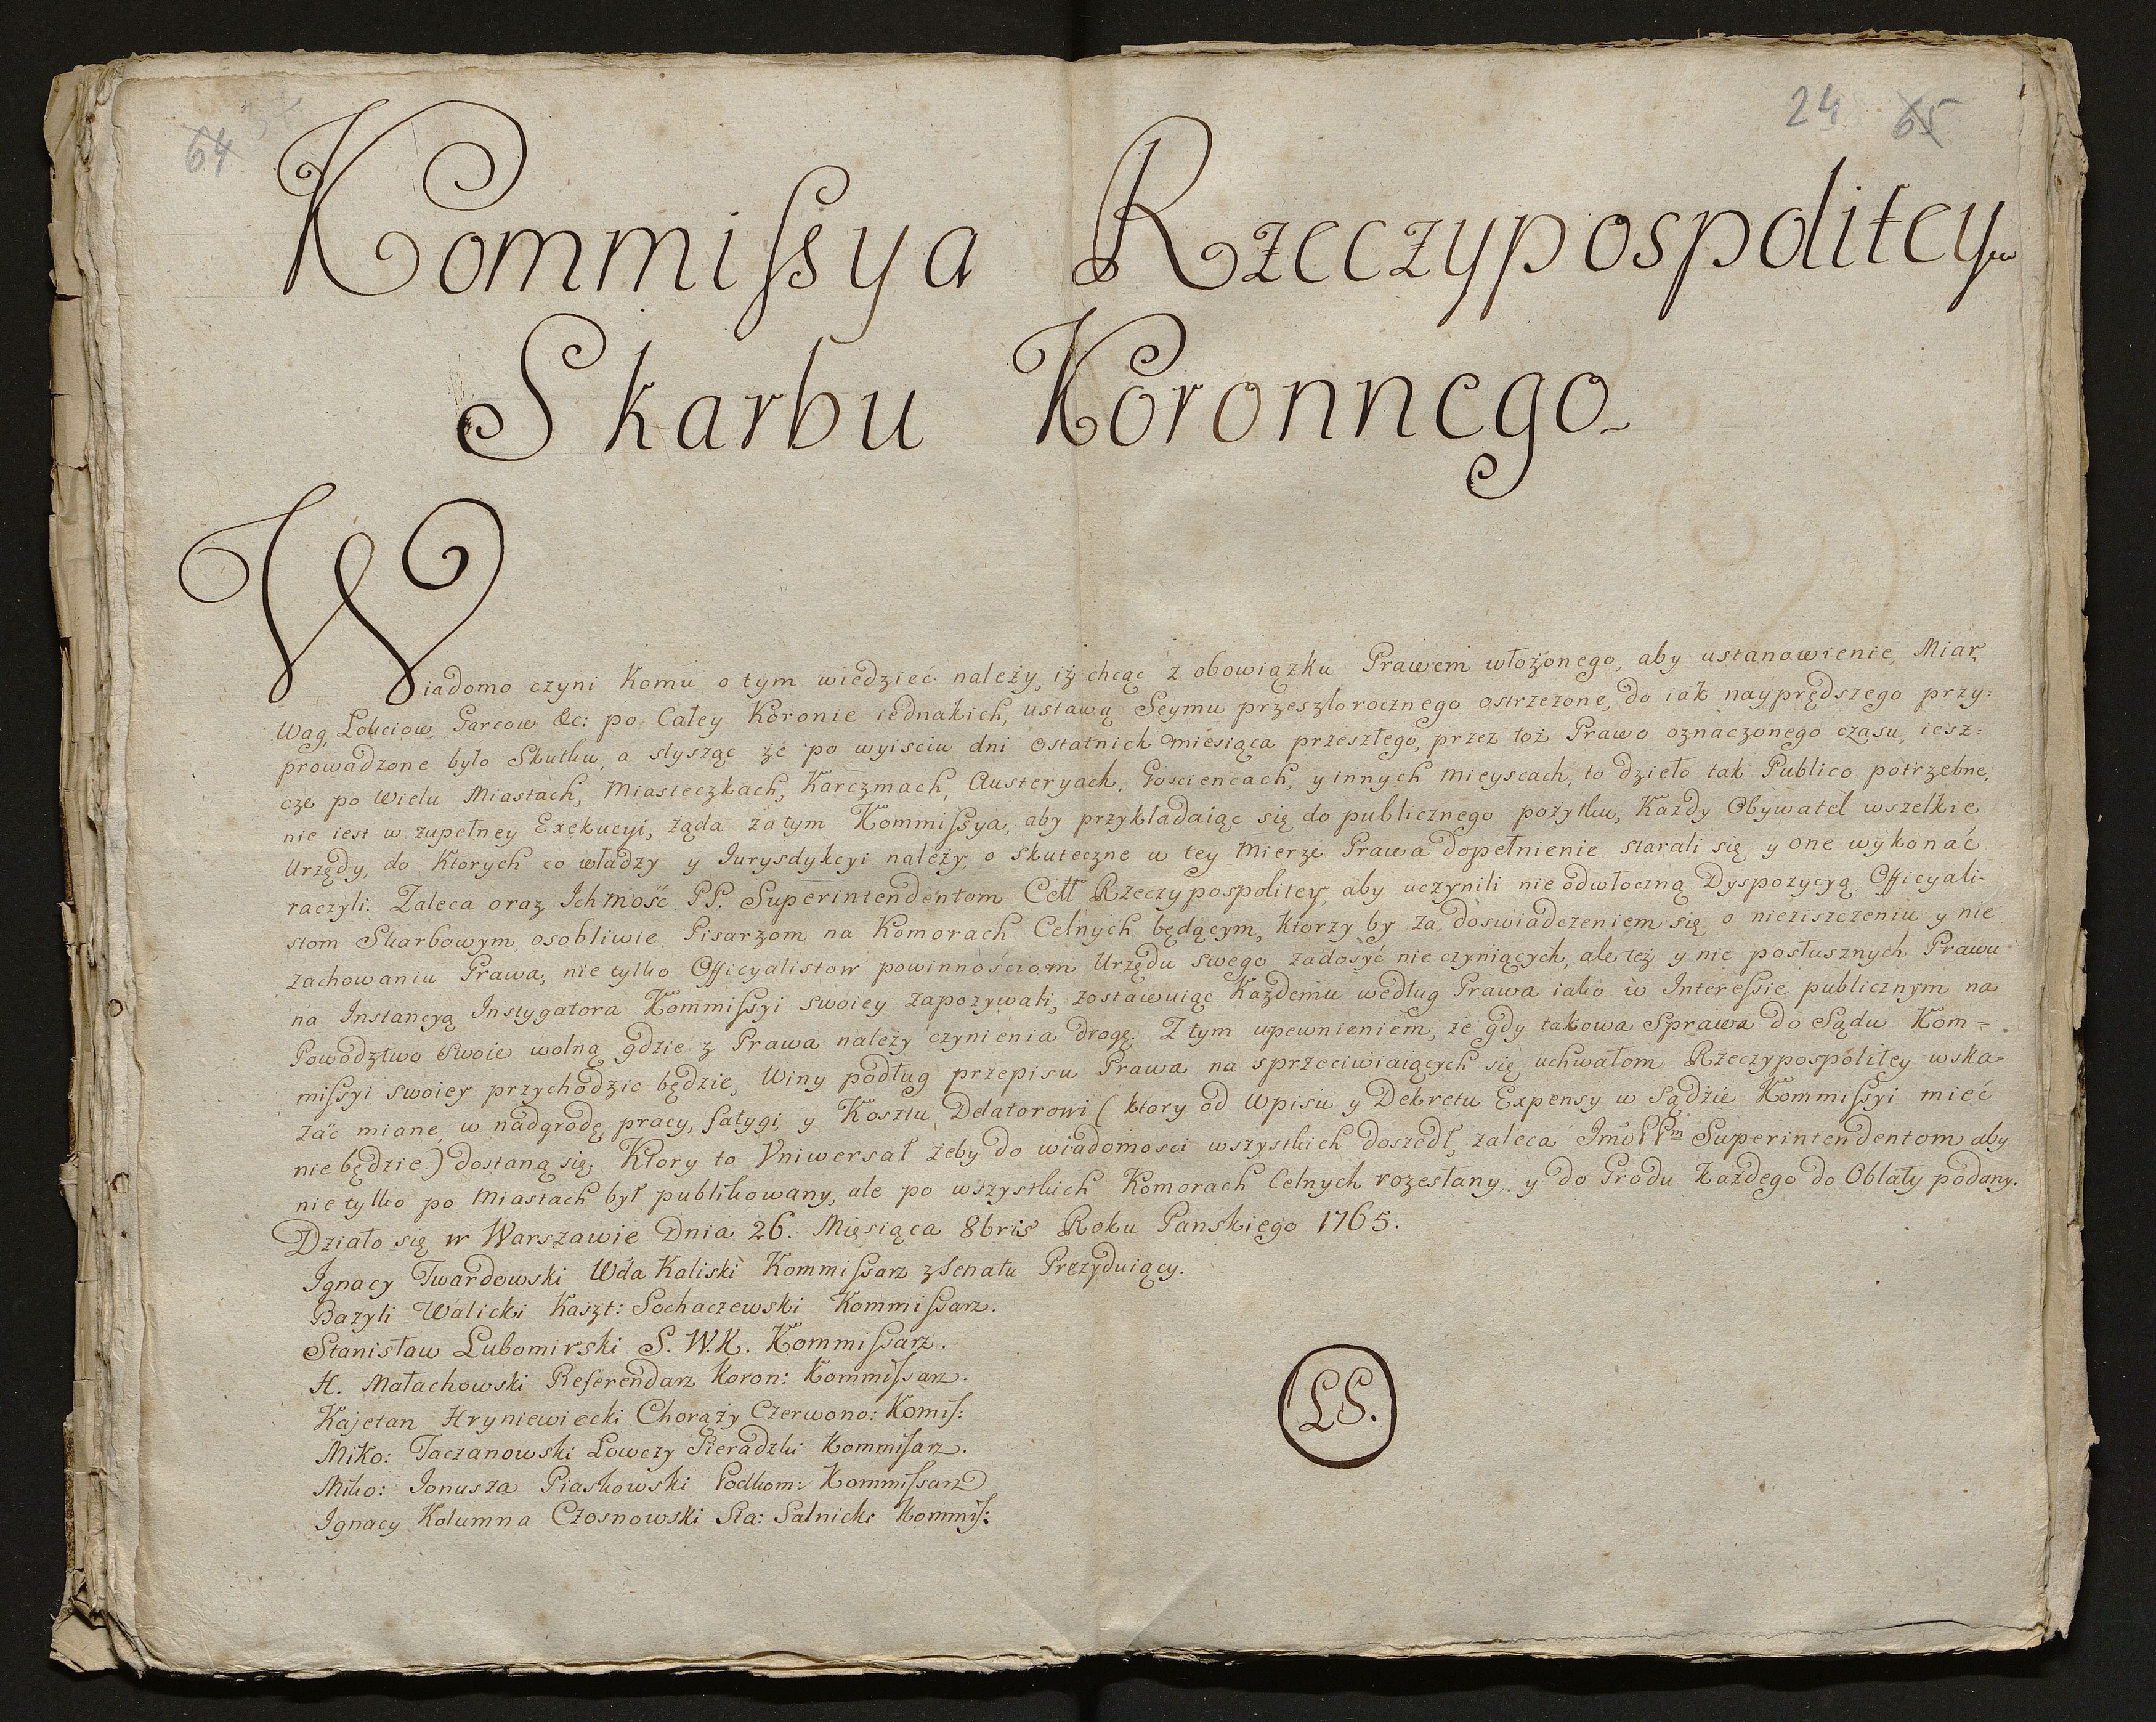 64
24 65
Kommissya Rzeczypospolitey
Skarbu Koronnego
Wiadomo czyni Komu o tym wiedzieć należy, iż chcąc z obowiązku Prawem włożonego, aby ustanowienie Miar,
Wag, Łokciow, Garcow &c: po Całey Koronie iednakich, ustawą Seymu przeszłorocznego ostrzeżone, do iak nayprędszego przy=
prowadzone było Skutku, a słysząc że po wyisciu dni ostatnich miesiąca przeszłego, przez toż Prawo oznaczonego czasu, iesz=
cze po Wielu Miastach, Miasteczkach, Karczmach, Austeryach, Goscieńcach, y innych mieyscach, to dzieło tak Publico potrzebne,
nie iest w zupełney Exekucyi, żąda zatym Kommissya, aby przykładaiąc się do publicznego pożytku, Każdy Obywatel wszelkie
Urzędy, do Ktorych co władzy y Iurysdykcyi należy, o skuteczne w tey Mierze Prawa dopełnienie starali się y one wykonać
raczyli. Zaleca oraz Ichmość PP. Superintendentom Cełł Rzeczypospolitey, aby uczynili nieodwłoczną Dyspozycyą Officyali-
stom Skarbowym, osobliwie Pisarzom na Komorach Celnych będącym, Ktorzy by za doswiadczeniem się o nieziszczeniu y nie
zachowaniu Prawa, nie tylko Officyalistow powinnościom Urzędu swego zadosyć nie czyniących, ale też y nie posłusznych Prawu
na Instancyą Instygatora Kommissyi swoiey zapozywali, zostawuiąc Każdemu według Prawa iako w Interessie publicznym na
Powodztwo swoie wolną gdzie z Prawa należy czynienia drogę. Z tym upewnieniem, że gdy takowa Sprawa do Sądu Kom=
missyi swoiey przychodzic będzie, Winy podług przepisu Prawa na sprzeciwiaiących się uchwałom Rzeczypospolitey wska=
zać miane, w nadgrodę pracy, fatygi, y Kosztu Delatorowi (ktory od Wpisu y Dekretu Expensy w Sądzie Kommissyi mieć
nie będzie) dostaną się. Ktory to Vniwersał żeby do wiadomosci wszystkich doszedł, zaleca Imo PPm Superintendentom aby
nie tylko po Miastach był publikowany, ale po wszystkich Komorach Celnych rozesłany, y do Grodu każdego do Oblaty podany.
Działo się w Warszawie Dnia 26. Miesiąca 8bris Roku Panskiego 1765.
Ignacy Twardowski Wda Kaliski Kommissarz z Senatu Prezyduiący.
Bazyli Walicki Kaszt: Sochaczewski Kommissarz.
Stanisław Lubomirski S. W. K. Kommissarz.
H. Małachowski Referendarz Koron: Kommissarz.
Kajetan Hryniewiecki Chorąży Czerwono: Komis:
Miko: Taczanowski Łowczy Sieradzki Kommisarz.
Miko: Ionusza Piaskowski Podkom: Kommissarz
Ignacy Kolumna Czosnowski Sta: Salnicki Kommis:
LS.